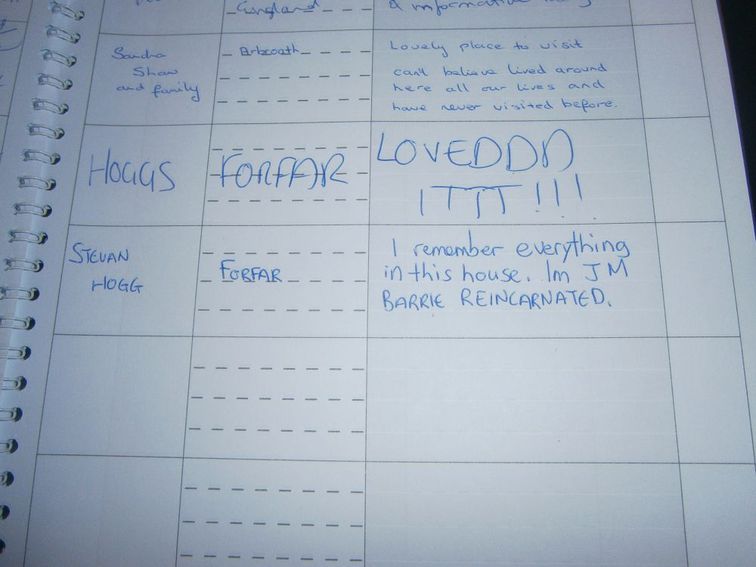 England
A informative
Sandra
Shaw
and family
Arbroath
Lovely place to visit
cant believe lived around
here all our lives and
have never visited before.
HOGGS
FORFAR
LOVEDDD
ITTT!!!
STEVAN
HOGG
FORFAR
I remember everything
in this house. Im JM
BARRIE REINCARNATED.